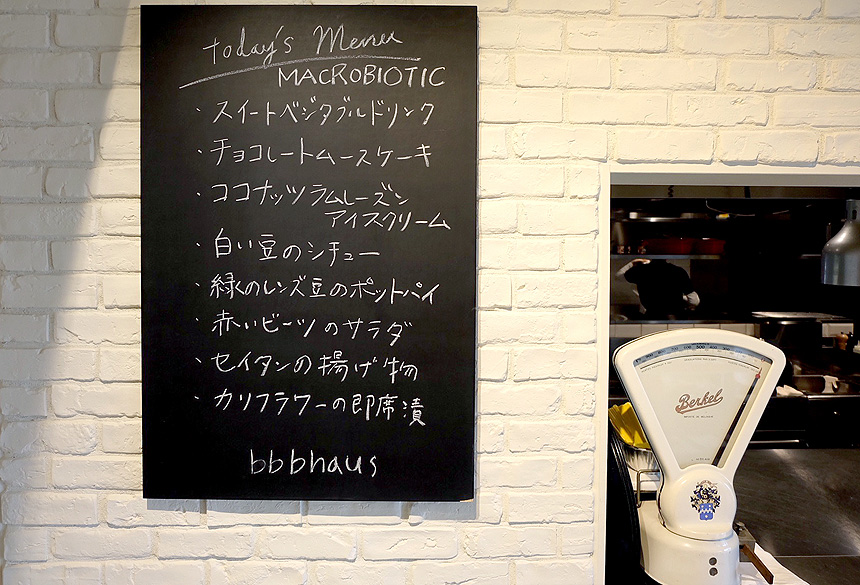 today's Menu
MACROBIOTIC
・スイートベジタブルドリンク
・チョコレートムースケーキ
・ココナッツラムレーズン
アイスクリーム
・白い豆のシチュー
・緑のレンズ豆のポットパイ
・赤いビーツのサラダ
・セイタンの揚げ物
・カリフラワーの即席漬
bbbhaus
Berkel